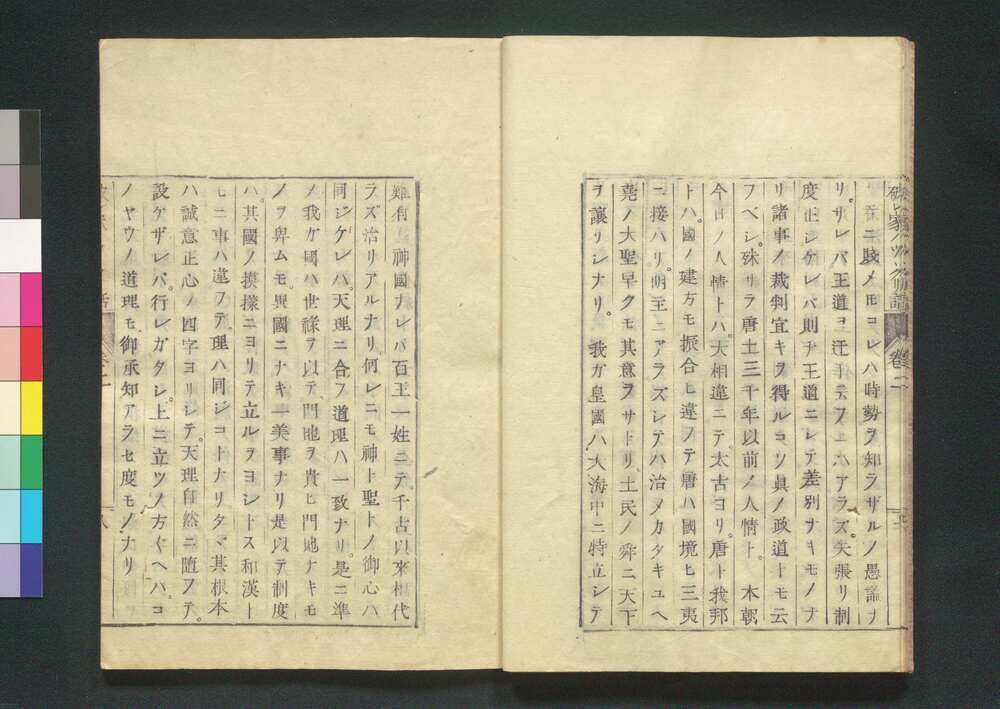 吾ニ賤メモコレハ時勢ヲ知ラザルノ愚論ヲ
リ。サレバ王道ヲ迂手テフニハアラズ。矢張リ制
度正シケレバ則チ王道ニシテ差別ナキモノナ
リ諸事ノ裁判宜キヲ得ルコソ眞ノ政道トモ云
フベシ。殊リラ唐土三千年以前ノ人情ト。本朝
今日ノ人情トハ。大相違ニテ。太古ヨリ。唐ト我邦
トハ。國ノ建方モ振合ヒ違フテ唐ハ國境ヒ三夷
ニ接ハリ。明主ニアラズシテハ治メカタキユヘ
堯ノ大聖早クモ其意ヲサトリ、土民ノ舜ニ天下
ヲ讓リシナリ。我ガ皇國ハ大海中ニ特立シテ
難有 神國ナレバ百王一姓ニテ。千古以來相代
ラズ治リアルナリ。何レニモ神ト聖トノ御心ハ
同ジケレハ。天理ニ合フ道理ハ一致ナリ。是ニ準
メ我ガ國ハ世祿ヲ以テ門地ヲ貴ヒ門地ナキモ
ノヲ卑ムモ。異國ニナキ一美事ナリ是以テ制度
ハ。其國ノ摸樣ニヨリテ立ルヲヨシトス和漢ト
モニ事ハ違フテ、理ハ同シコトナリタヾ其根本
ハ誠意正心ノ四字ヨリシテ。天理自然ニ随フテ。
設ケザレバ。行レガタシ。上ニ立ツノ方〱ヘバ。コ
ノヤウノ道理モ御承知アラセ度モノナリ